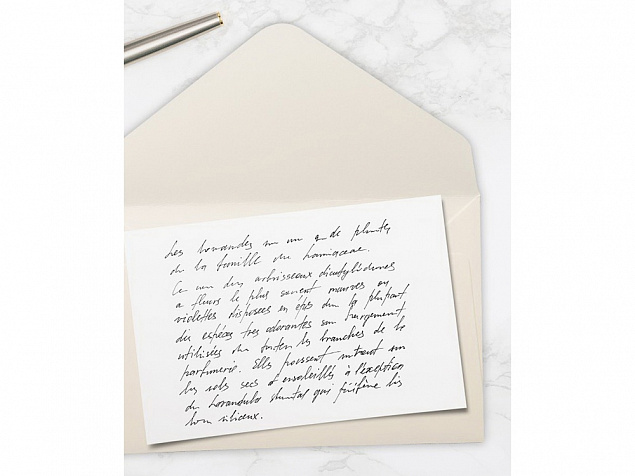 Les lavandes
de la famille des Lamiaceae.
Ce des arbrisseaux dicotylédones
à fleurs le plus souvent mauves ou
violettes disposées en épis dont la plupart
des espèces très odorantes sont largement
utilisées dans toutes les branches de la
parfumerie. Elles poussent surtout sur
les sols secs et ensoleillés à l'exception
du Lavandula qui préfère les
siliceux.